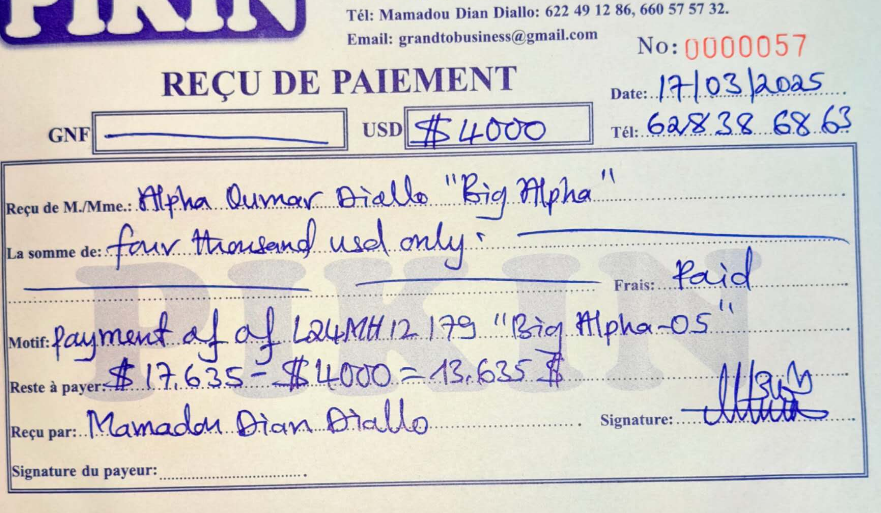 PIKIN
Tél: Mamadou Dian Diallo: 622 49 12 86, 660 57 57 32.
Email: grandtobusiness@gmail.com
No: 0000057
REÇU DE PAIEMENT
Date: 17/03/2025
GNF USD $4000
Tél: 628 38 68 63
Reçu de M./Mme.: Alpha Oumar Diallo "Big Alpha"
La somme de: four thousand usd only.
Frais: Paid
PIKIN
Motif: payment of of L24MH12179 "Big Alpha-05"
Reste à payer: $17.635 - $4000 = 13.635 $
Reçu par: Mamadou Dian Diallo
Signature:
Signature du payeur: